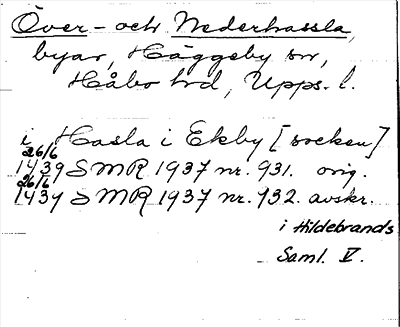 Över- och Nederhassla,
byar, Häggeby sn,
Håbo hd, Upps. l.
i Hasla i Ekby [socken]
26/6
1439 SMR 1937 nr. 931. orig.
26/6
1439 SMR 1937 nr. 932. avskr.
i Hildebrands
Saml. V.